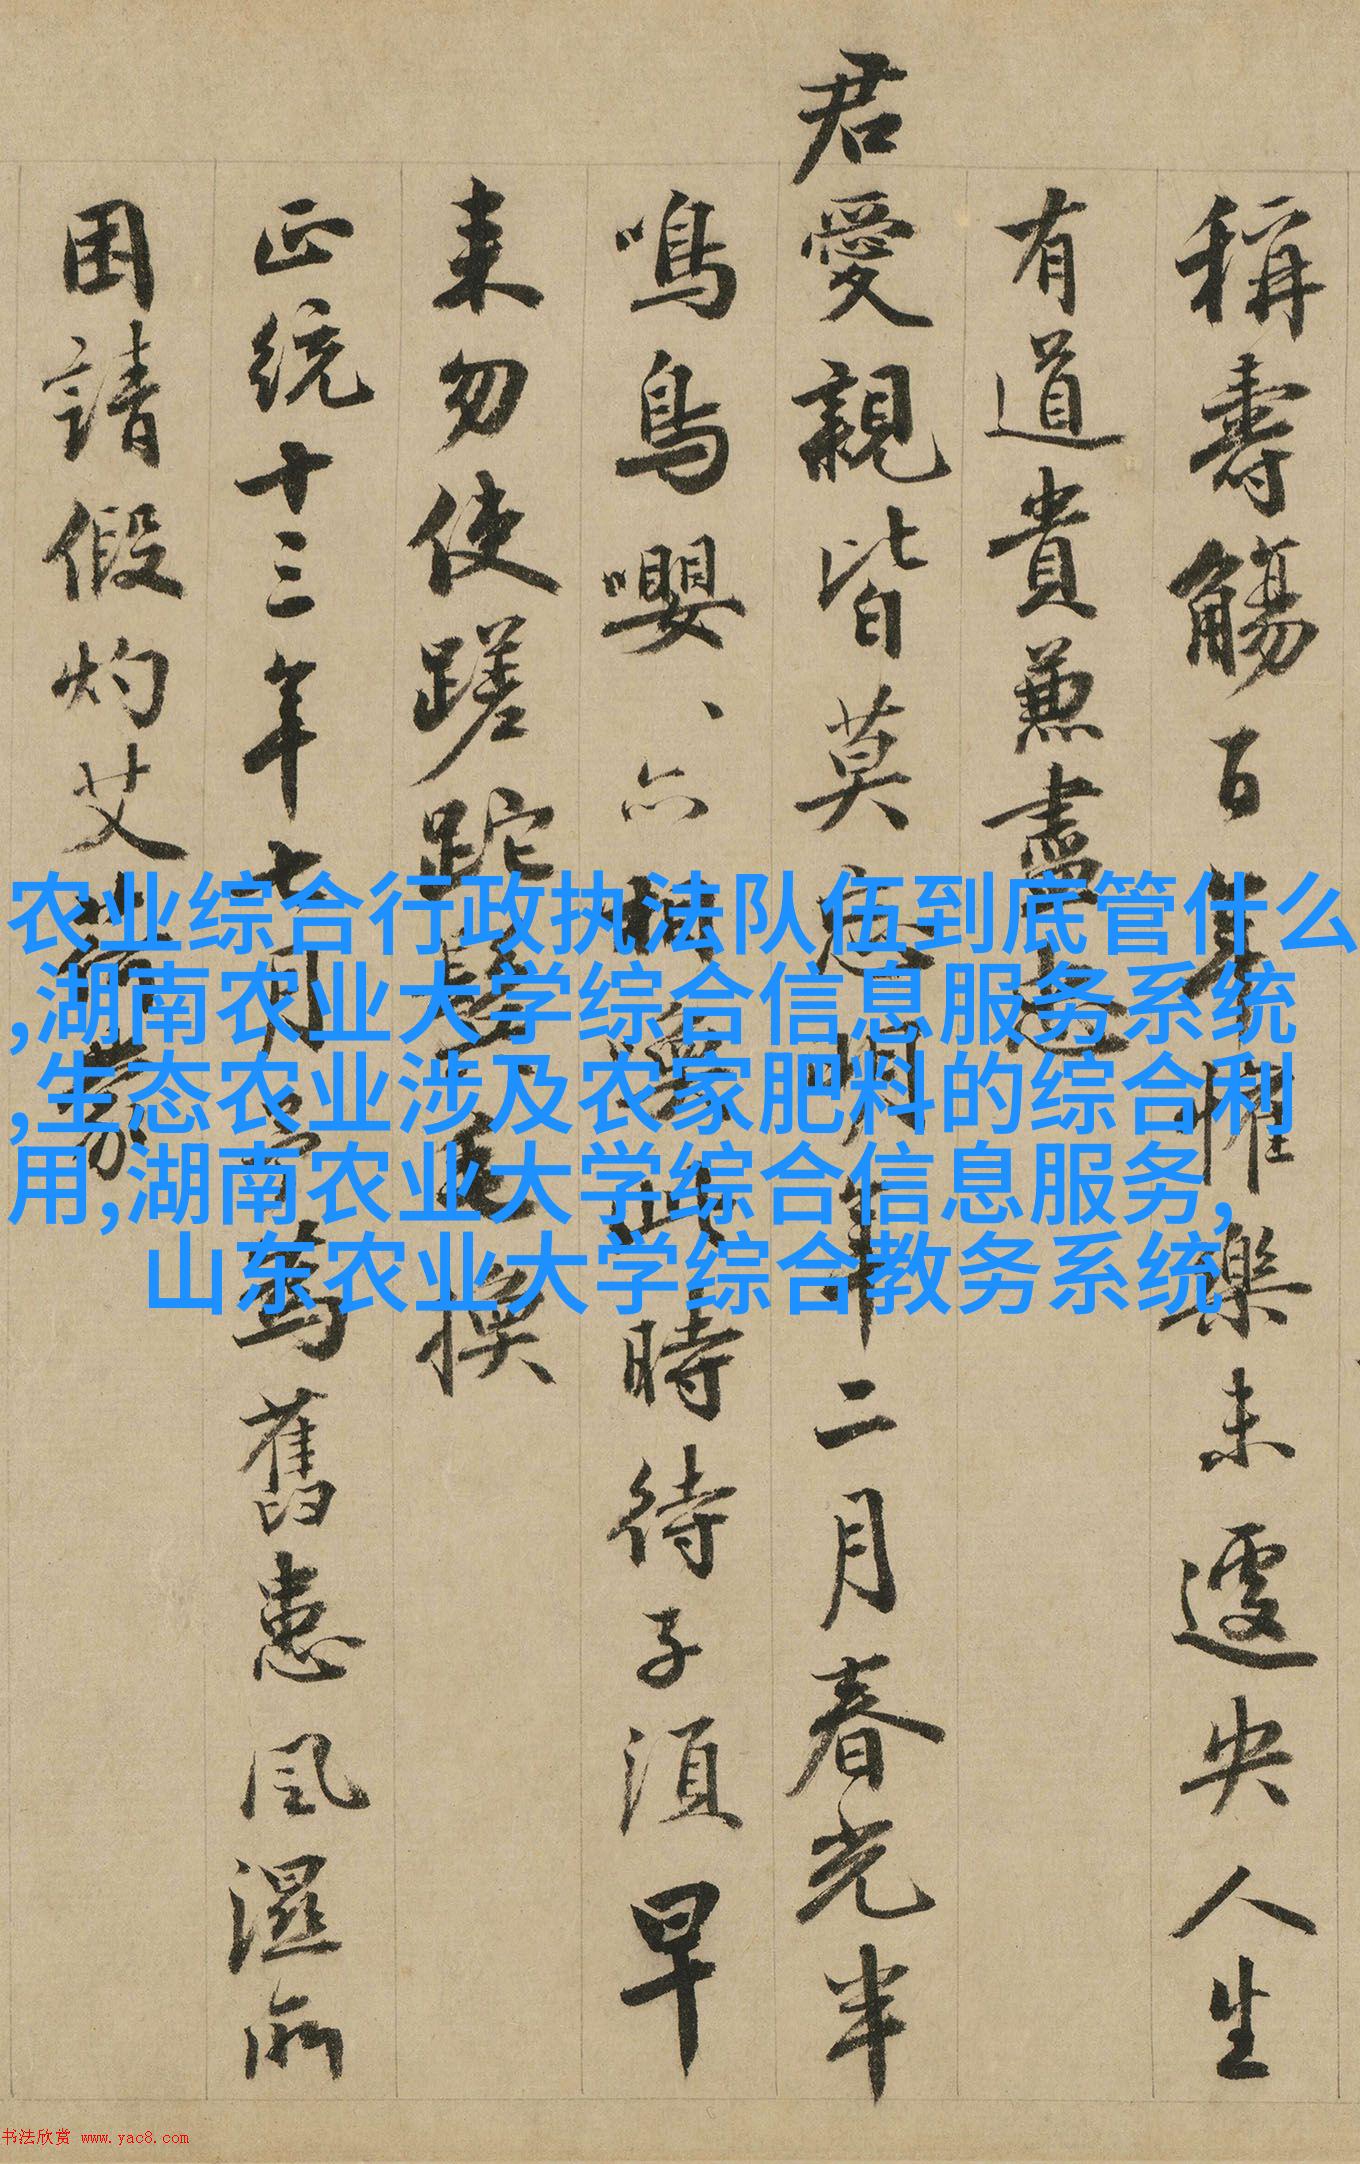 稱壽觴百年懽樂未遽央人生
有道貴兼盡忠
君愛親皆莫忘明年二月春光半
鳴鳥嚶、亦相此時待子須早
来勿使蹉跎鬢毛換
正統十三年七月舊患風濕所
困請假灼艾
农业综合行政执法队伍到底管什么
,湖南农业大学综合信息服务系统
,生态农业涉及农家肥料的综合利
用,湖南农业大学综合信息服务,
山东农业大学综合教务系统
书法欣赏 www.yac8.com